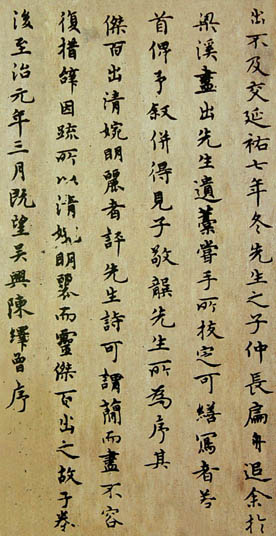 出不及交延祐七年冬先生之子仲長扁舟追余於
梁溪盡出先生遺藁嘗手所校定可繕寫者若
首俾予叙併得見子敬龔先生所為序其
傑百出清婉明麗者評先生詩可謂蕳而盡不容
復措辭因疏所以清婉明麗而靈傑百出之故于卷
後至治元年三月既望吳興陳繹曾序